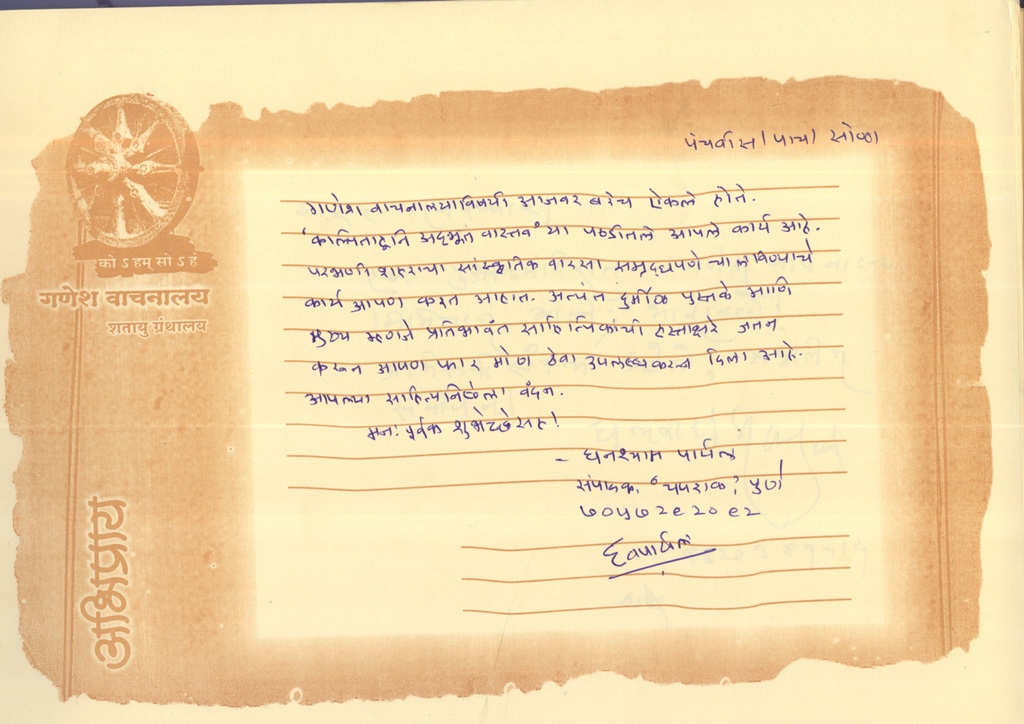 पंचवीस/पाच/सोळा
को ऽ हम् सो ऽ हं
गणेश वाचनालय
शतायु ग्रंथालय
अभिप्राय
गणेश वाचनालयाविषयी आजवर बरेच ऐकले होते.
'कल्पिताहूनि अद्‌भूत वास्तव' या पठडीतले आपले कार्य आहे.
परभणी शहराचा सांस्कृतिक वारसा समृद्धपणे चालविण्याचे
कार्य आपण करत आहात. अत्यंत दुर्मीळ पुस्तके आणि
मुख्य म्हणजे प्रतिभावंत साहित्यिकांची हस्ताक्षरे जतन
करून आपण फार मोठा ठेवा उपलब्ध करून दिला आहे.
आपल्या साहित्यनिष्ठेला वंदन.
मनःपूर्वक शुभेच्छेसह!
- घनश्याम पाटील
संपादक, 'चपराक', पुणे
७०५७२९२०९२